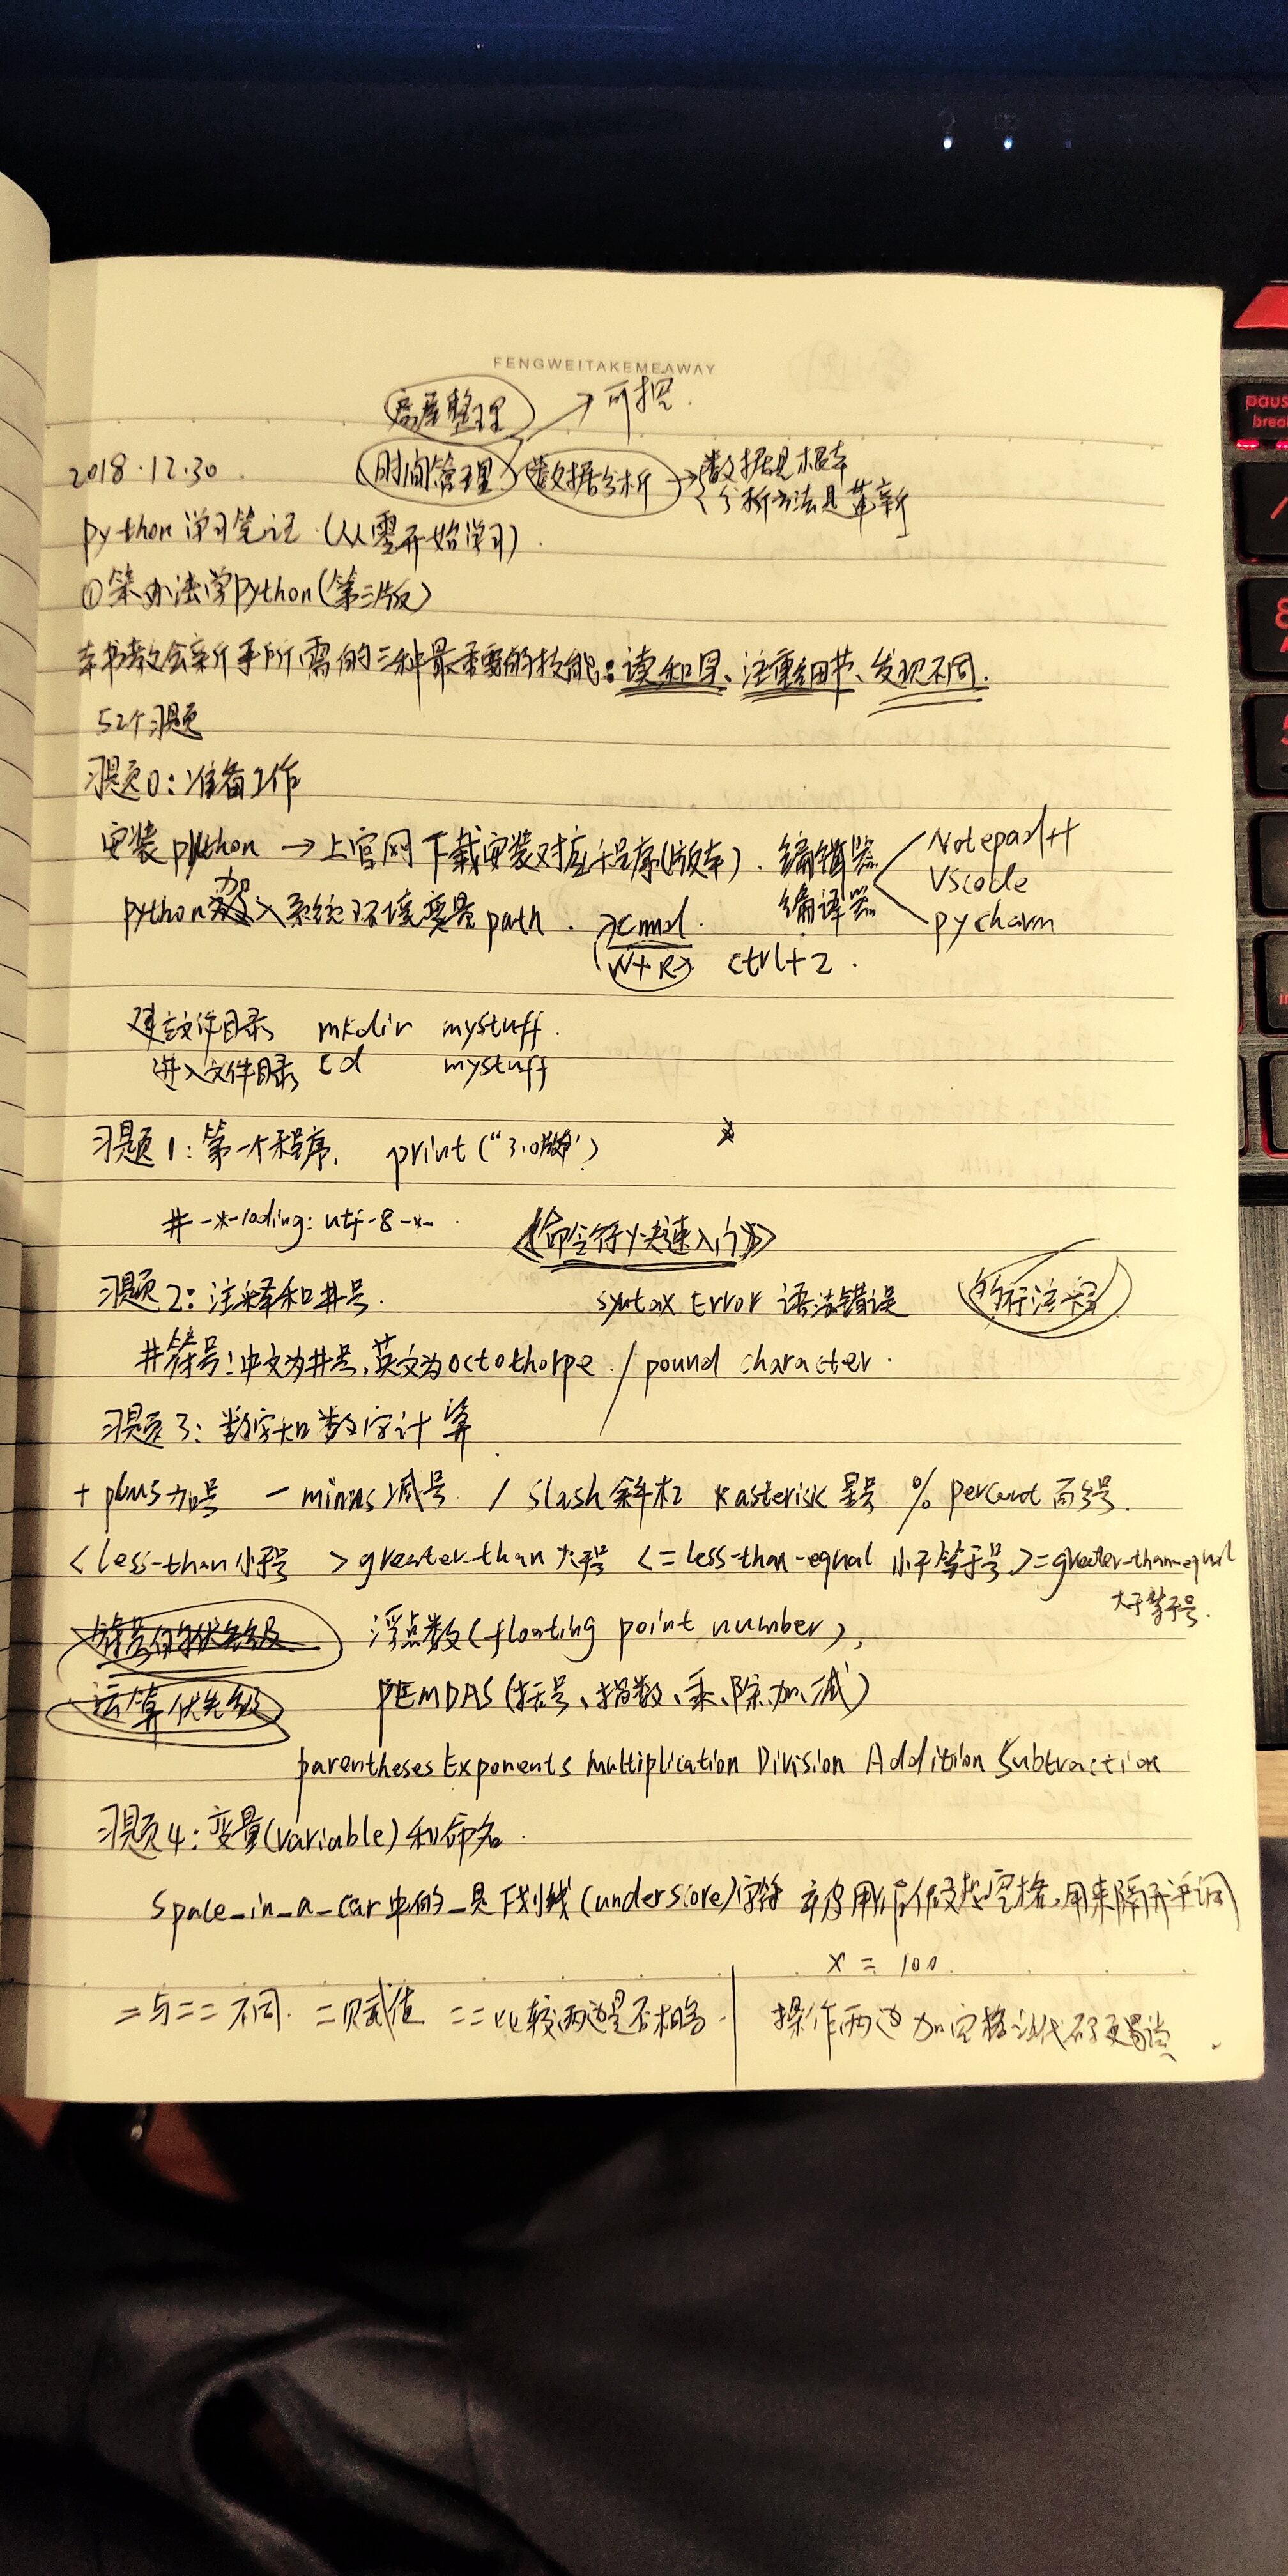 FENGWEITAKEMEAWAY
整理 → 可
2018.12.30 时间管理 数据分析 → 数据是根本
分析方法是革新
python学习笔记 (从零开始学习).
①笨办法学python(第三版)
本书教会新手所需的三种最重要的技能:读和写、注重细节、发现不同.
52个习题
习题0:准备工作
安装python → 上官网下载安装对应程序(版本). 编辑器 Notepad++
编译器 Vscode
pycharm
python加入系统环境变量path. cmd.
W+R ctrl+z.
建立文件目录 mkdir mystuff.
进入文件目录 cd mystuff
习题1:第一个程序. print("3.0版")
# -*-coding: utf-8-*-. 《命令行快速入门》
习题2:注释和井号. syntax Error 语法错误 多行注释
井符号:中文为井号,英文为octothorpe./pound character.
习题3:数字和数字计算
+ plus加号 - minus减号. / slash斜杠 * asterisk星号 % percent百分号.
< less-than小于号 > greater-than大于号 <= less-than-equal 小于等于号 >= greater-than-equal
大于等于号.
浮点数(floating point number),
运算优先级 PEMDAS(括号、指数、乘、除、加、减)
parentheses Exponents Multiplication Division Addition Subtraction
习题4:变量(variable)和命名.
space_in_a_car中的_是下划线(underscore)字符 用作假想空格,用来隔开单词
x = 100.
=与==不同. =赋值 ==比较两边是否相等. 操作两边加空格让代码更易读.